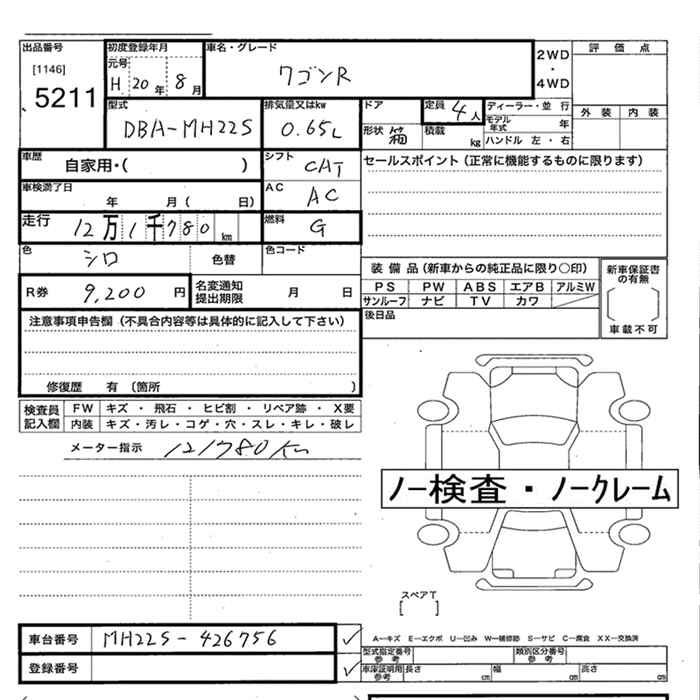 出品番号
[1146]
5211
初度登録年月
元号
H 20 年 8 月
車名・グレード
ワゴンR
2WD
・
4WD
評 価 点
外 装 内 装
型式
DBA-MH22S
排気量又はkw
0.65L
ドア
定員 4 人
形状 箱
積載 kg
ディーラー・並 行
モデル年式 年
ハンドル 左 ・ 右
車歴
自家用・( )
シフト
CAT
車検満了日
年 月( 日)
AC
AC
走行
12万1千780 km
燃料
G
セールスポイント(正常に機能するものに限ります)
色
シロ
色替
色コード
R券
9,200 円
名変通知
提出期限
月 日
装 備 品(新車からの純正品に限り○印)
PS PW ABS エアB アルミW
サンルーフ ナビ TV カワ
後日品
新車保証書
の有無
車載不可
注意事項申告欄(不具合内容等は具体的に記入して下さい)
修復歴 有 〔箇所 〕
検査員
記入欄
FW キズ ・ 飛石 ・ ヒビ割 ・ リペア跡 ・ X要
内装 キズ・汚レ・コゲ・穴・スレ・キレ・破レ
メーター指示 121780Km
ノー検査・ノークレーム
スペアT
[ ]
車台番号 MH22S-426756 ✓
登録番号 ✓
A―キズ E―エクボ U―凹み W―補修跡 S―サビ C―腐食 XX―交換済
型式指定番号
参 考
類別区分番号
参 考
車庫証明用
参 考
長さ cm 幅 cm 高さ cm